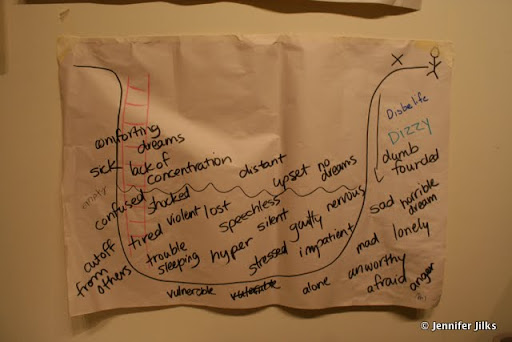 Disbelife
Dizzy
dumb
founded
comforting
dreams
sick
lack of
concentration
distant
upset
no
dreams
confused
shocked
violent
lost
speechless
silent
guilty
nervous
sad
horrible
dream
tired
trouble
sleeping
hyper
stressed
impatient
mad
lonely
cutoff
from
others
vulnerable
alone
unworthy
afraid
anger
© Jennifer Jilks